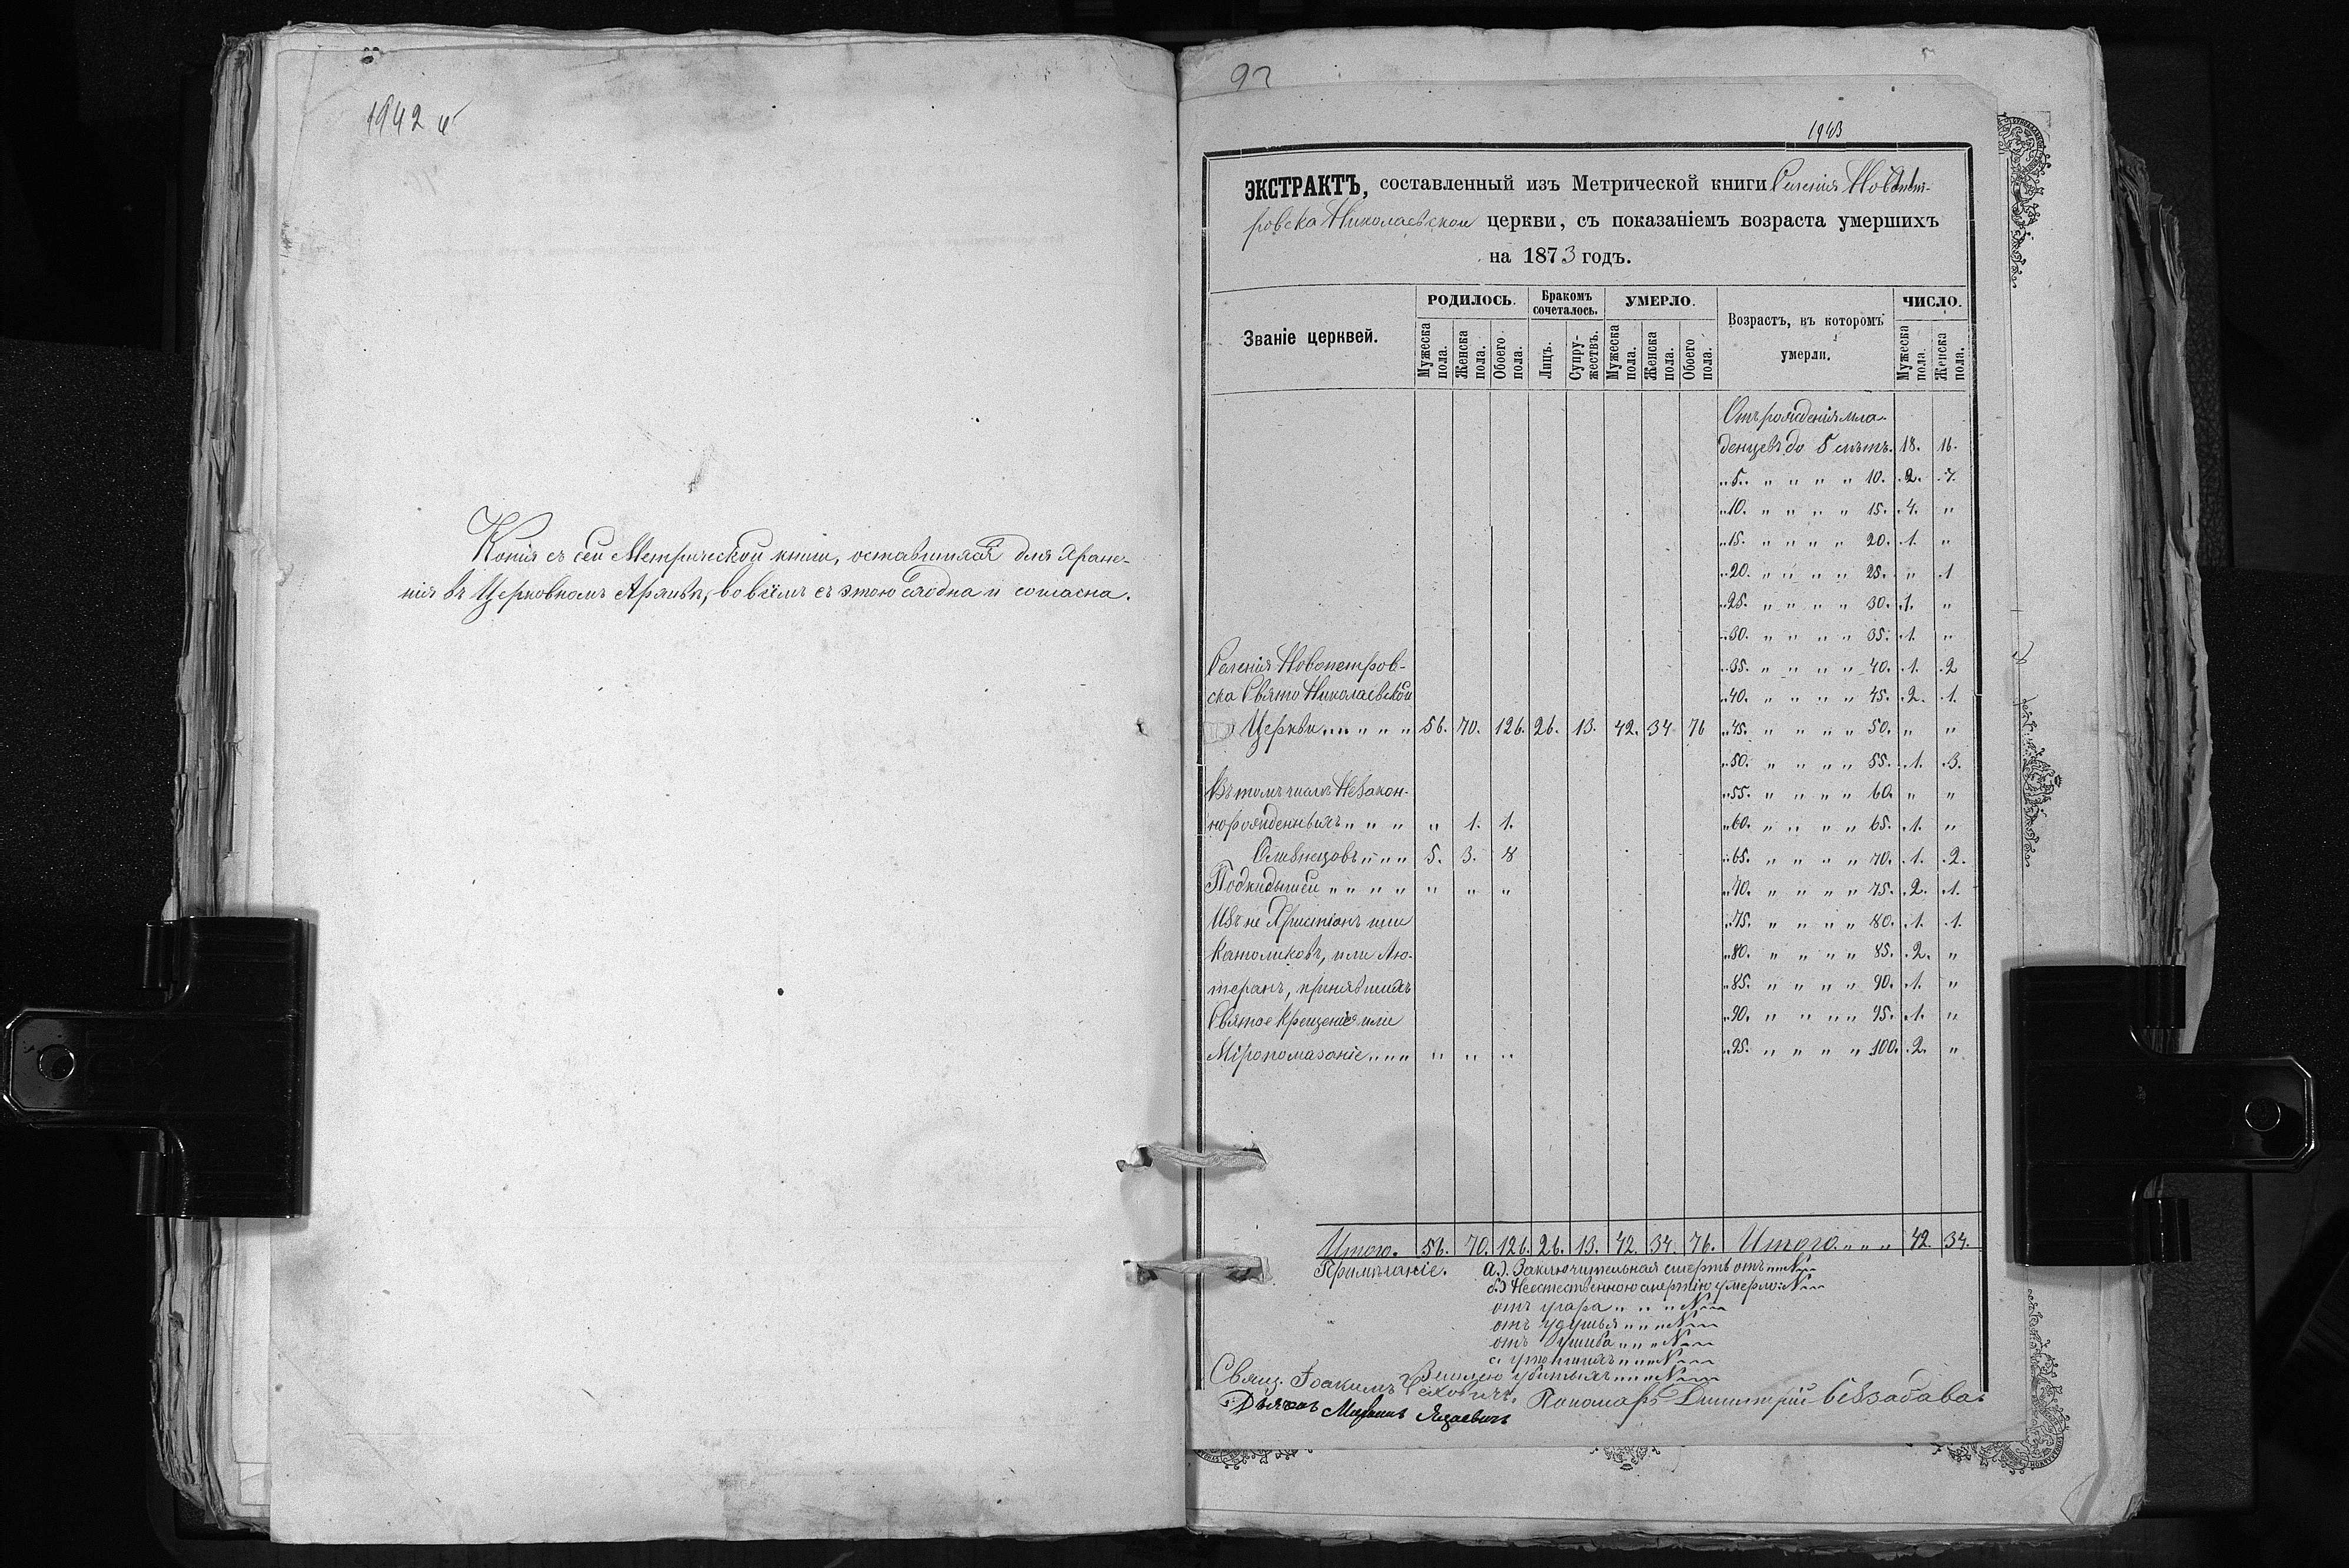 1942 
Копія съ сей Метрической книги, оставшаяся для хране-
нія въ Церковномъ Архивѣ, во всѣмъ съ этою сходна и согласна.
92
1943
ЭКСТРАКТЪ, составленный изъ Метрической книги Селенія Новопет-
ровска Николаевской церкви, съ показаніемъ возраста умершихъ
на 1873 годъ.
Званіе церквей. РОДИЛОСЬ. Бракомъ сочеталось. УМЕРЛО. Возрастъ, въ которомъ умерли. ЧИСЛО.
Мужеска пола. Женска пола. Обоего пола. Лицъ. Супружествъ. Мужеска пола. Женска пола. Обоего пола. Мужеска пола. Женска пола.
Отъ рожденія мла-
денцевъ до 5 лѣтъ. 18. 16.
„ 5. „ „ „ „ 10. 2. 7.
„ 10. „ „ „ „ 15. 4. „
„ 15. „ „ „ „ 20. 1. „
„ 20. „ „ „ „ 25. „ 1
„ 25. „ „ „ „ 30. 1. „
„ 30. „ „ „ „ 35. 1. „
Селенія Новопетров- „ 35. „ „ „ „ 40. 1. 2
ска Свято Николаевской „ 40. „ „ „ „ 45. 2. 1.
Церкви „ „ „ „ 56. 70. 126. 26. 13. 42. 34 76 „ 45. „ „ „ „ 50. „ „
„ 50. „ „ „ „ 55. 1. 3.
Въ томъ числѣ Незакон- „ 55. „ „ „ „ 60. „ „
норожденныхъ „ „ „ „ 1. 1. „ 60. „ „ „ „ 65. 1. „
Близнецовъ „ „ „ 5. 3. 8 „ 65. „ „ „ „ 70. 1. 2.
Подкидышей „ „ „ „ „ „ „ „ 70. „ „ „ „ 75. 2. 1.
Изъ не Христіанъ или „ 75. „ „ „ „ 80. 1. 1.
Католиковъ, или Лю- „ 80. „ „ „ „ 85. 2. „
теранъ, принявшихъ „ 85. „ „ „ „ 90. 1. „
Святое Крещеніе или „ 90. „ „ „ „ 95. 1. „
Мѵропомазаніе „ „ „ „ „ „ „ 95. „ „ „ „ 100. 2. „
Итого. 56. 70. 126. 26. 13. 42. 34. 76. Итого „ „ „ 42. 34.
Примѣчаніе. а.) Заключительная смерть отъ „ „ N
б.) Неестественною смертію умерло: N
отъ угара „ „ „ N
отъ удушья „ „ „ N
отъ ушиба „ „ „ N
утопшихъ „ „ „ N
Землею убитыхъ „ „ „ N
Свящ. Іоакимъ Пономарь Димитрій Беззабава
Дьякъ Михаилъ